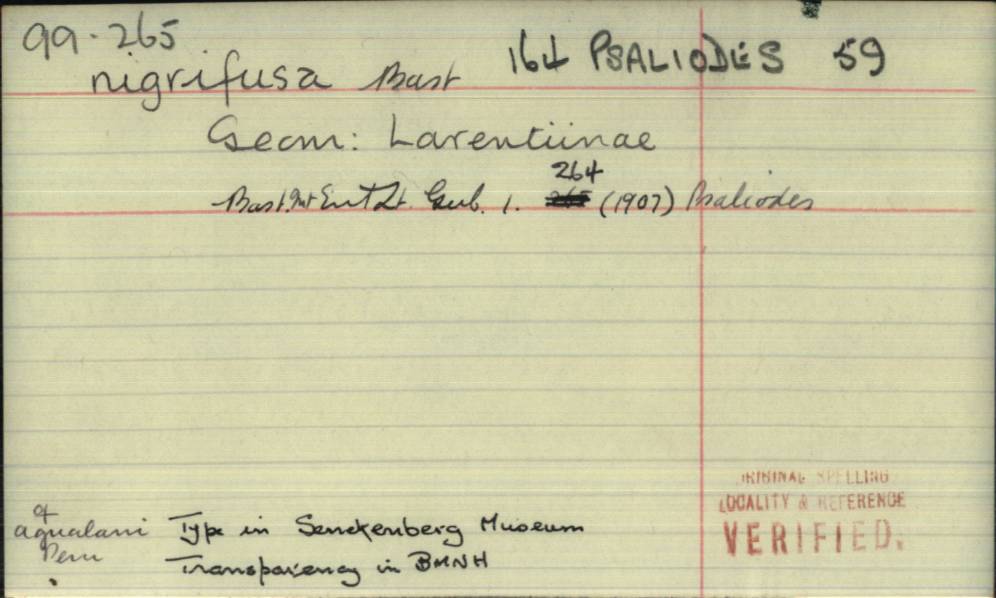 99·265
164 PSALIODES 59
nigrifusa Bast
Geom: Larentiinae
264
Bast. Int Ent Zt. Gub. 1. (1907) Psaliodes
ORIGINAL SPELLING
LOCALITY & REFERENCE
VERIFIED.
aqualani Type in Senckenberg Museum
Peru
Transparency in BMNH